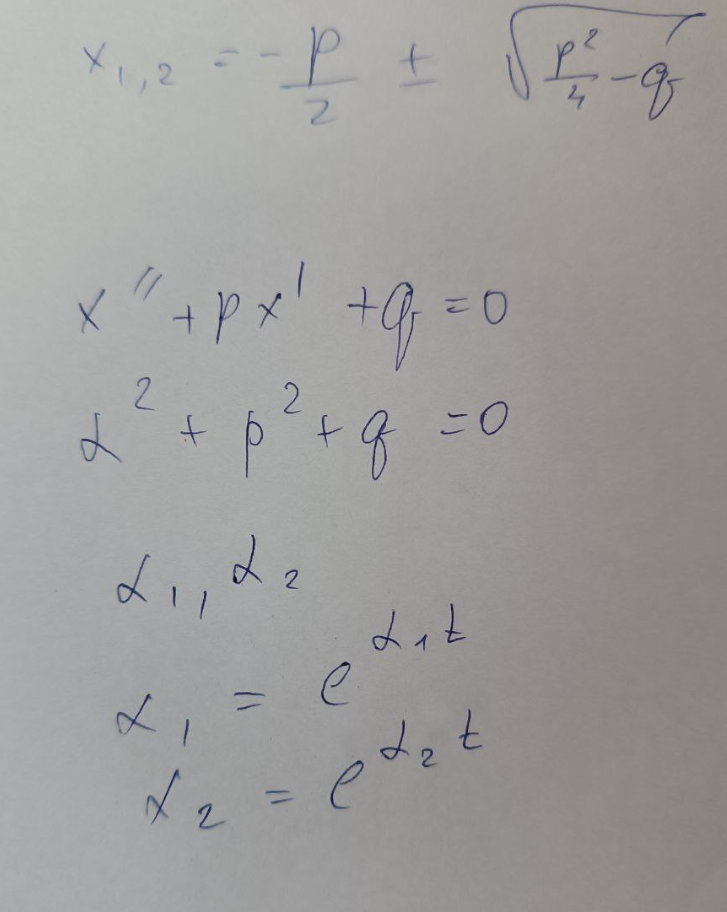 x₁,₂ = -p/2 ± √(p²/4 - q)
x'' + px' + q = 0
α² + p² + q = 0
α₁, α₂
α₁ = e^(α₁t)
α₂ = e^(α₂t)